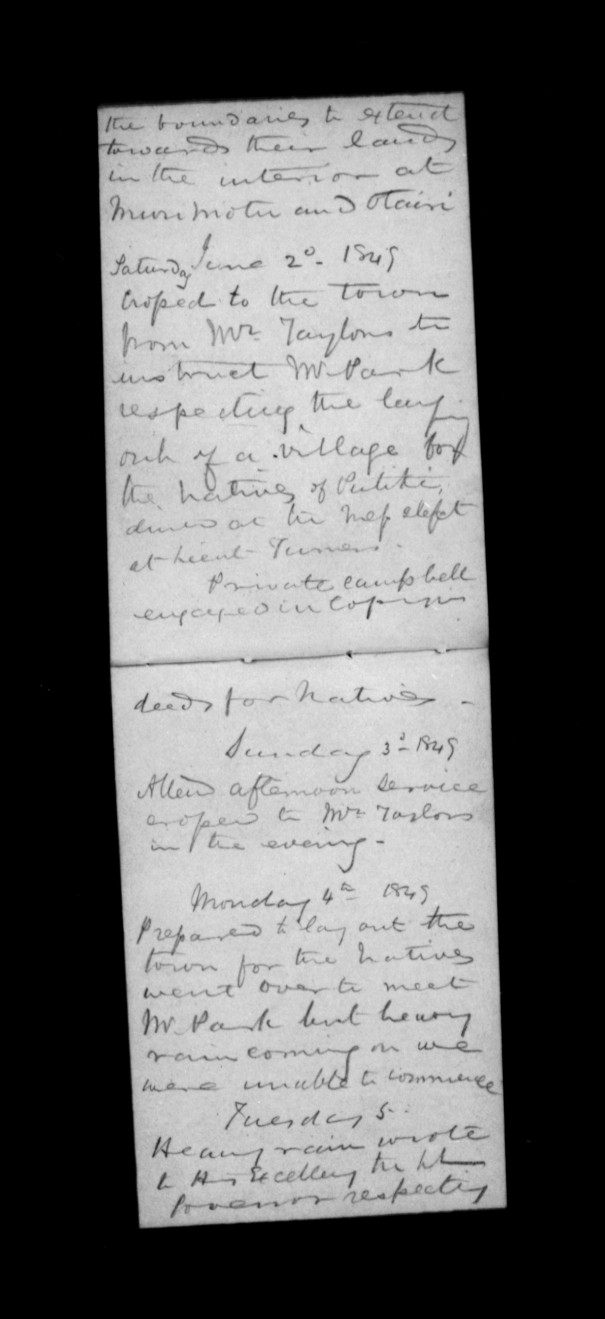 the boundaries to extend
towards their lands
in the interior at
Murimotu and Otairi
Saturday June 2d. 1849
Croped to the town
from Mr. Taylors to
instruct Mr Park
respecting the laying
out of a village for
the natives of Putiki,
dined at the Mess slept
at Lieut Turners.
Private campbell
engaged in Copying
deeds for Natives -
Sunday 3d 1849
Attend afternoon service
croped to Mr. Taylors
in the evening -
Monday 4th 1849
Prepared to lay out the
town for the Natives
went over to meet
Mr. Park but heavy
rain coming on we
were unable to commence
Tuesday 5.
Heavy rain wrote
to His Excellency the Lt
Govenor respecting